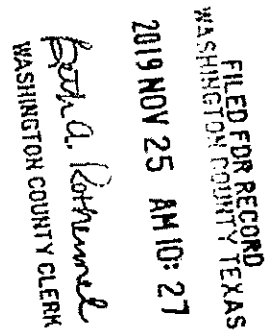 FILED FOR RECORD
WASHINGTON COUNTY TEXAS
2019 NOV 25 AM 10: 27
Beth A. Rothermel
WASHINGTON COUNTY CLERK